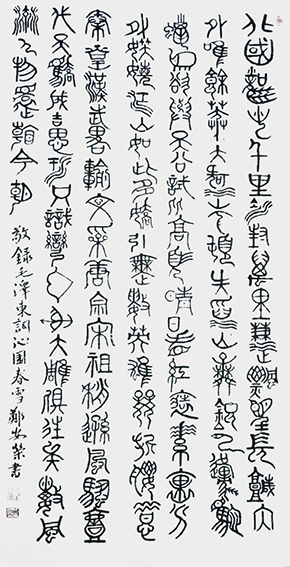 北國風光千里冰封萬里雪飄望長城內
外唯餘莽莽大河上下頓失滔滔山舞銀蛇原馳
蠟象欲與天公試比高須晴日看紅裝素裹分
外妖嬈江山如此多嬌引無數英雄競折腰惜
秦皇漢武略輸文采唐宗宋祖稍遜風騷一
代天驕成吉思汗只識彎弓射大雕俱往矣數風
流人物還看今朝 敬錄毛澤東詞沁園春雪 鄭安榮書